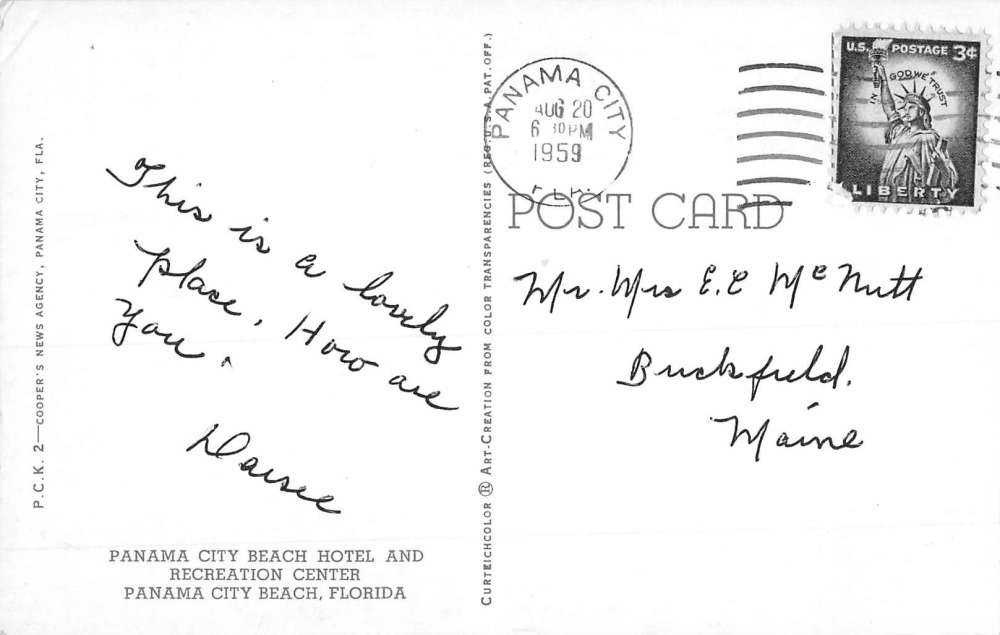 P.C.K. 2—COOPER'S NEWS AGENCY, PANAMA CITY, FLA.
This is a lovely
place. How are
you.
Daisee
PANAMA CITY BEACH HOTEL AND
RECREATION CENTER
PANAMA CITY BEACH, FLORIDA
CURTEICHCOLOR ® ART-CREATION FROM COLOR TRANSPARENCIES (REG. U.S.A. PAT. OFF.)
PANAMA CITY
AUG 20
6 30 PM
1959
FLA.
U.S. POSTAGE 3¢
IN GOD WE TRUST
LIBERTY
POST CARD
Mr. Mrs E.E Mc Nutt
Buckfield.
Maine